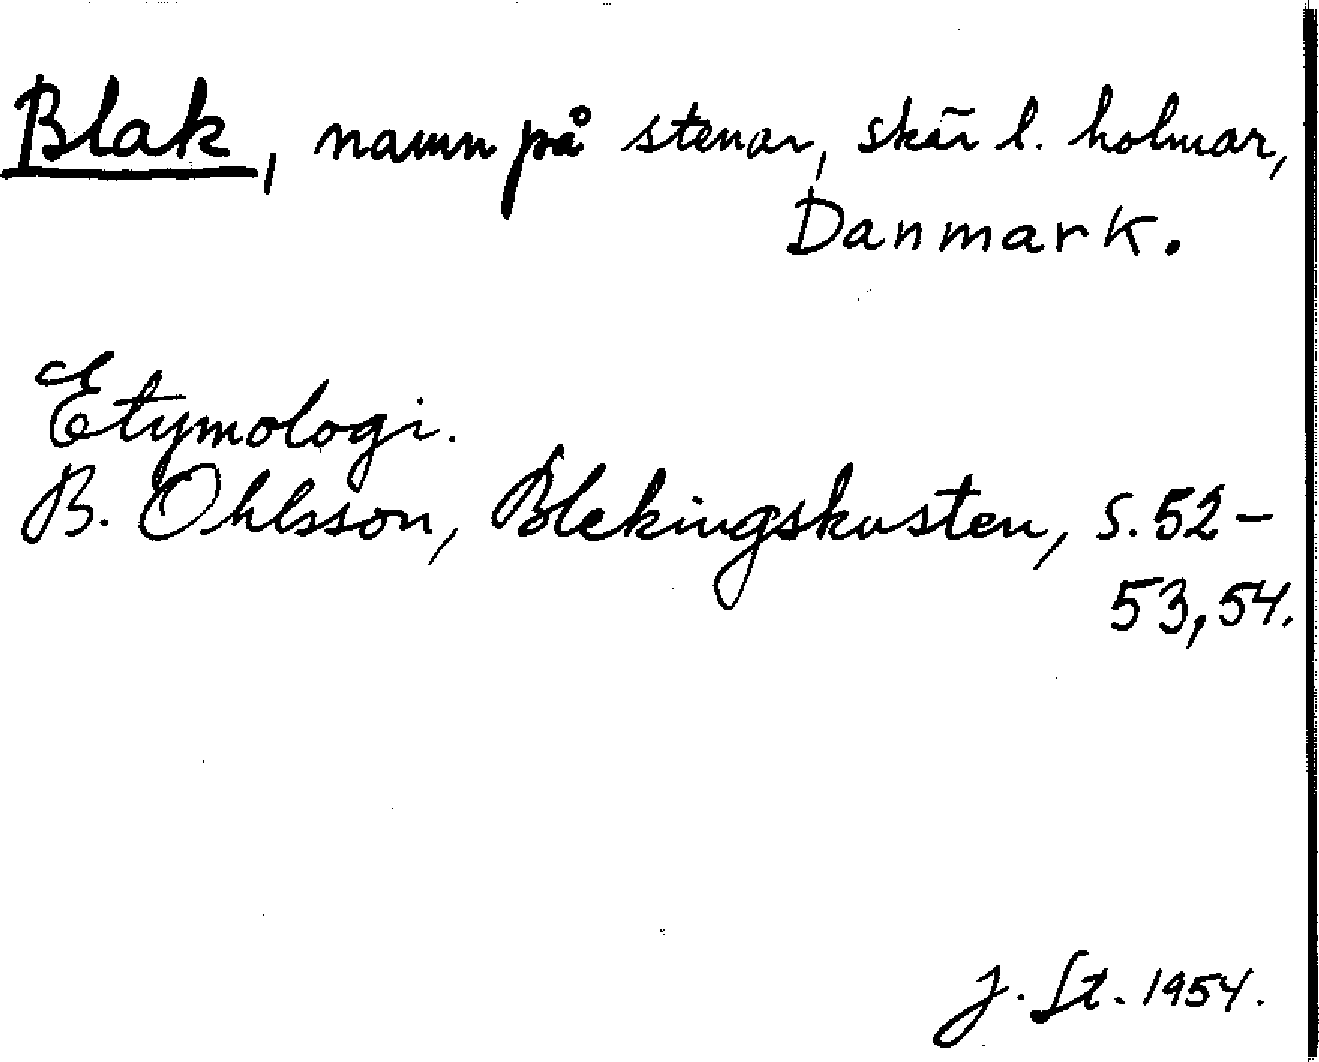 Blak, namn på stenar, skär l. holmar,
Danmark.
Etymologi.
B. Ohlsson, Blekingskusten, s. 52-
53, 54.
J. St. 1954.